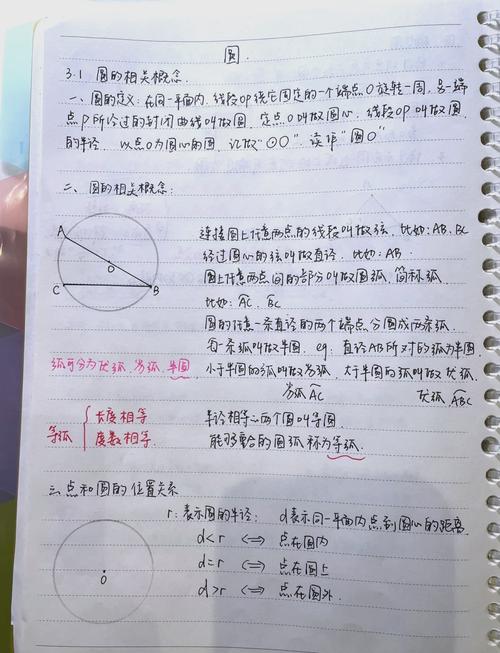 圆.
3.1 圆的相关概念.
一、圆的定义:在同一平面内,线段OP绕它固定的一个端点O旋转一周,另一端
点P所经过的封闭曲线叫做圆,定点O叫做圆心,线段OP叫做圆
的半径. 以点O为圆心的圆,记做"⊙O",读作"圆O"
二、圆的相关概念:
A
O
C
B
连接圆上任意两点的线段叫做弦.比如:AB、BC
经过圆心的弦叫做直径.比如:AB.
圆上任意两点间的部分叫做圆弧,简称弧
比如:AC、BC
圆的任意一条直径的两个端点分圆成两条弧.
每一条弧叫做半圆. eg. 直径AB所对的弧为半圆.
弧可分为优弧、劣弧、半圆
小于半圆的弧叫做劣弧,大于半圆的弧叫做优弧.
劣弧AC 优弧ABC
等弧 { 长度相等
度数相等.
半径相等的两个圆叫等圆.
能够重合的圆弧称为等弧.
三、点和圆的位置关系
r:表示圆的半径; d表示同一平面内点到圆心的距离.
d<r <=> 点在圆内
d=r <=> 点在圆上
d>r <=> 点在圆外.
O